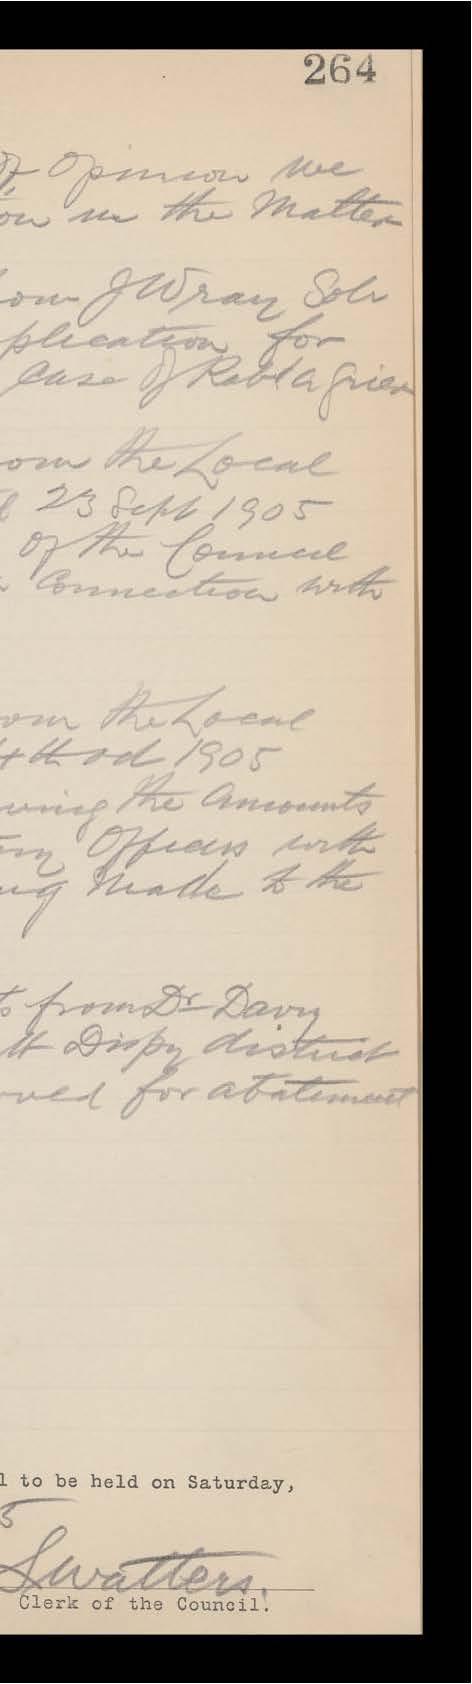 264
of Opinion we
on in the Matter
from J Wray Solr
plication for
Case of Robt A Grier
from the Local
23 Sept 1905
of the Council
Connection with
from the Local
4th Oct 1905
wing the Amounts
Officers with
ng Made to the
ts from Dr Davy
tt Dispy district
oved for abatement
l to be held on Saturday,
5
S Watters.
Clerk of the Council.